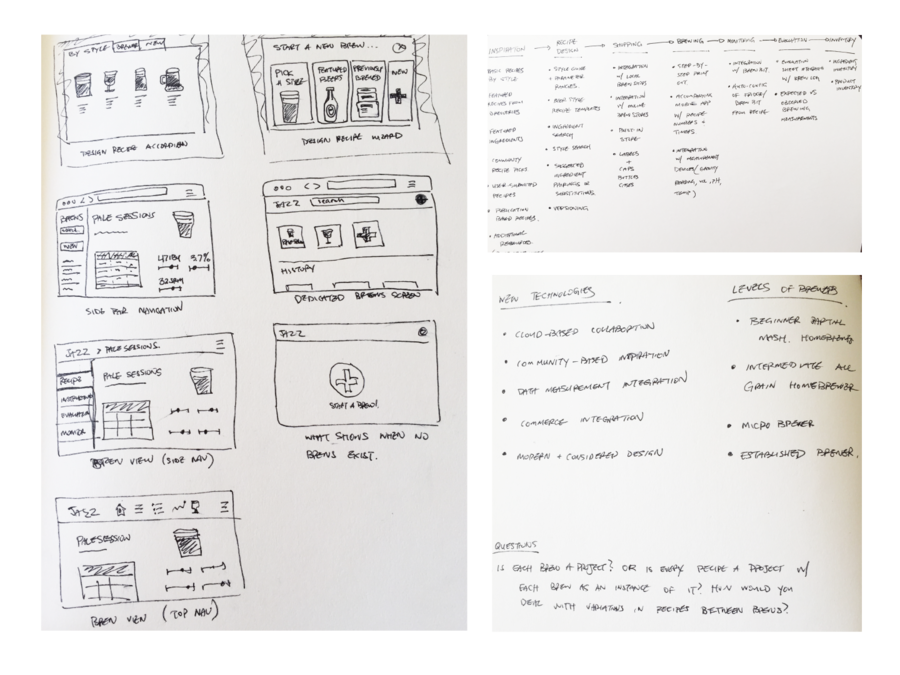 BY STYLE
NEW
DESIGN RECIPE ACCORDIEN
START A NEW BREW...
PICK
A SIZE
FEATURED
BEERS
PREVIOUSLY
BREWED
NEW
DESIGN RECIPE WIZARD
BREWS
NEW
PALE SESSIONS
SIDE BAR NAVIGATION
JAZZ
SEARCH
HISTORY
DEDICATED BREWS SCREEN
JAZZ > PALE SESSIONS.
RECIPE
EVALUATION
MONITOR
PALE SESSIONS
BREW VIEW (SIDE NAV)
JAZZ
START A BREW!
WHAT SHOWS WHEN NO
BREWS EXIST.
JAZZ
PALE SESSION
BREW VIEW (TOP NAV)
INSPIRATION
RECIPE
DESIGN
SHOPPING
BREWING
MONITORING
EVALUATION
INVENTORY
BY STYLE
FEATURED
INGREDIENTS
COMMUNITY
RECIPE PICKS
• USER-SUBMITTED
RECIPES
• PUBLICATION
BASED RECIPES.
• STYLE GUIDE
PARAMETER
• BEER TYPE
RECIPE TEMPLATES
• INGREDIENT
SEARCH
• STYLE SEARCH
• SUGGESTED
INGREDIENT
PAIRINGS OR
SUBSTITUTIONS.
• VERSIONING
• INTEGRATION
W/ LOCAL
BREW SHOPS
• INTEGRATION
W/ ONLINE
BREW STORES
• BUILT-IN
STORE
• LABELS
+
CAPS
BOTTLES
• STEP-BY-
STEP PRINT
OUT
• ACCOMPANYING
MOBILE APP
TIMERS
• INTEGRATION
W/ MEASUREMENT
• INTEGRATION
FROM RECIPE
• EVALUATION
• EXPECTED VS
BREWING
MEASUREMENTS
• INGREDIENT
INVENTORY
• PRODUCT
INVENTORY
NEW TECHNOLOGIES
• CLOUD-BASED COLLABORATION
• COMMUNITY-BASED INSPIRATION
• DATA MEASUREMENT INTEGRATION
• COMMERCE INTEGRATION
• MODERN + CONSIDERED DESIGN
LEVELS OF BREWERS
• BEGINNER PARTIAL
MASH. HOMEBREWER
• INTERMEDIATE ALL
GRAIN HOMEBREWER
• MICRO BREWER
• ESTABLISHED BREWER.
QUESTIONS
IS EACH BREW A PROJECT? OR IS EVERY RECIPE A PROJECT W/
EACH BREW AS AN INSTANCE OF IT? HOW WOULD YOU
DEAL WITH VARIATIONS IN RECIPES BETWEEN BREWS?